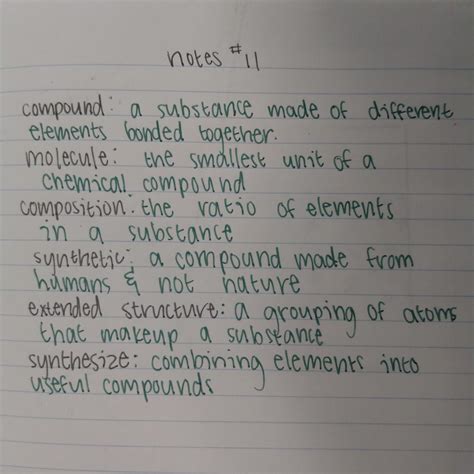 notes #11
compound: a substance made of different
elements bonded together.
molecule: the smallest unit of a
chemical compound
composition: the ratio of elements
in a substance
synthetic: a compound made from
humans & not nature
extended structure: a grouping of atoms
that makeup a substance
synthesize: combining elements into
useful compounds